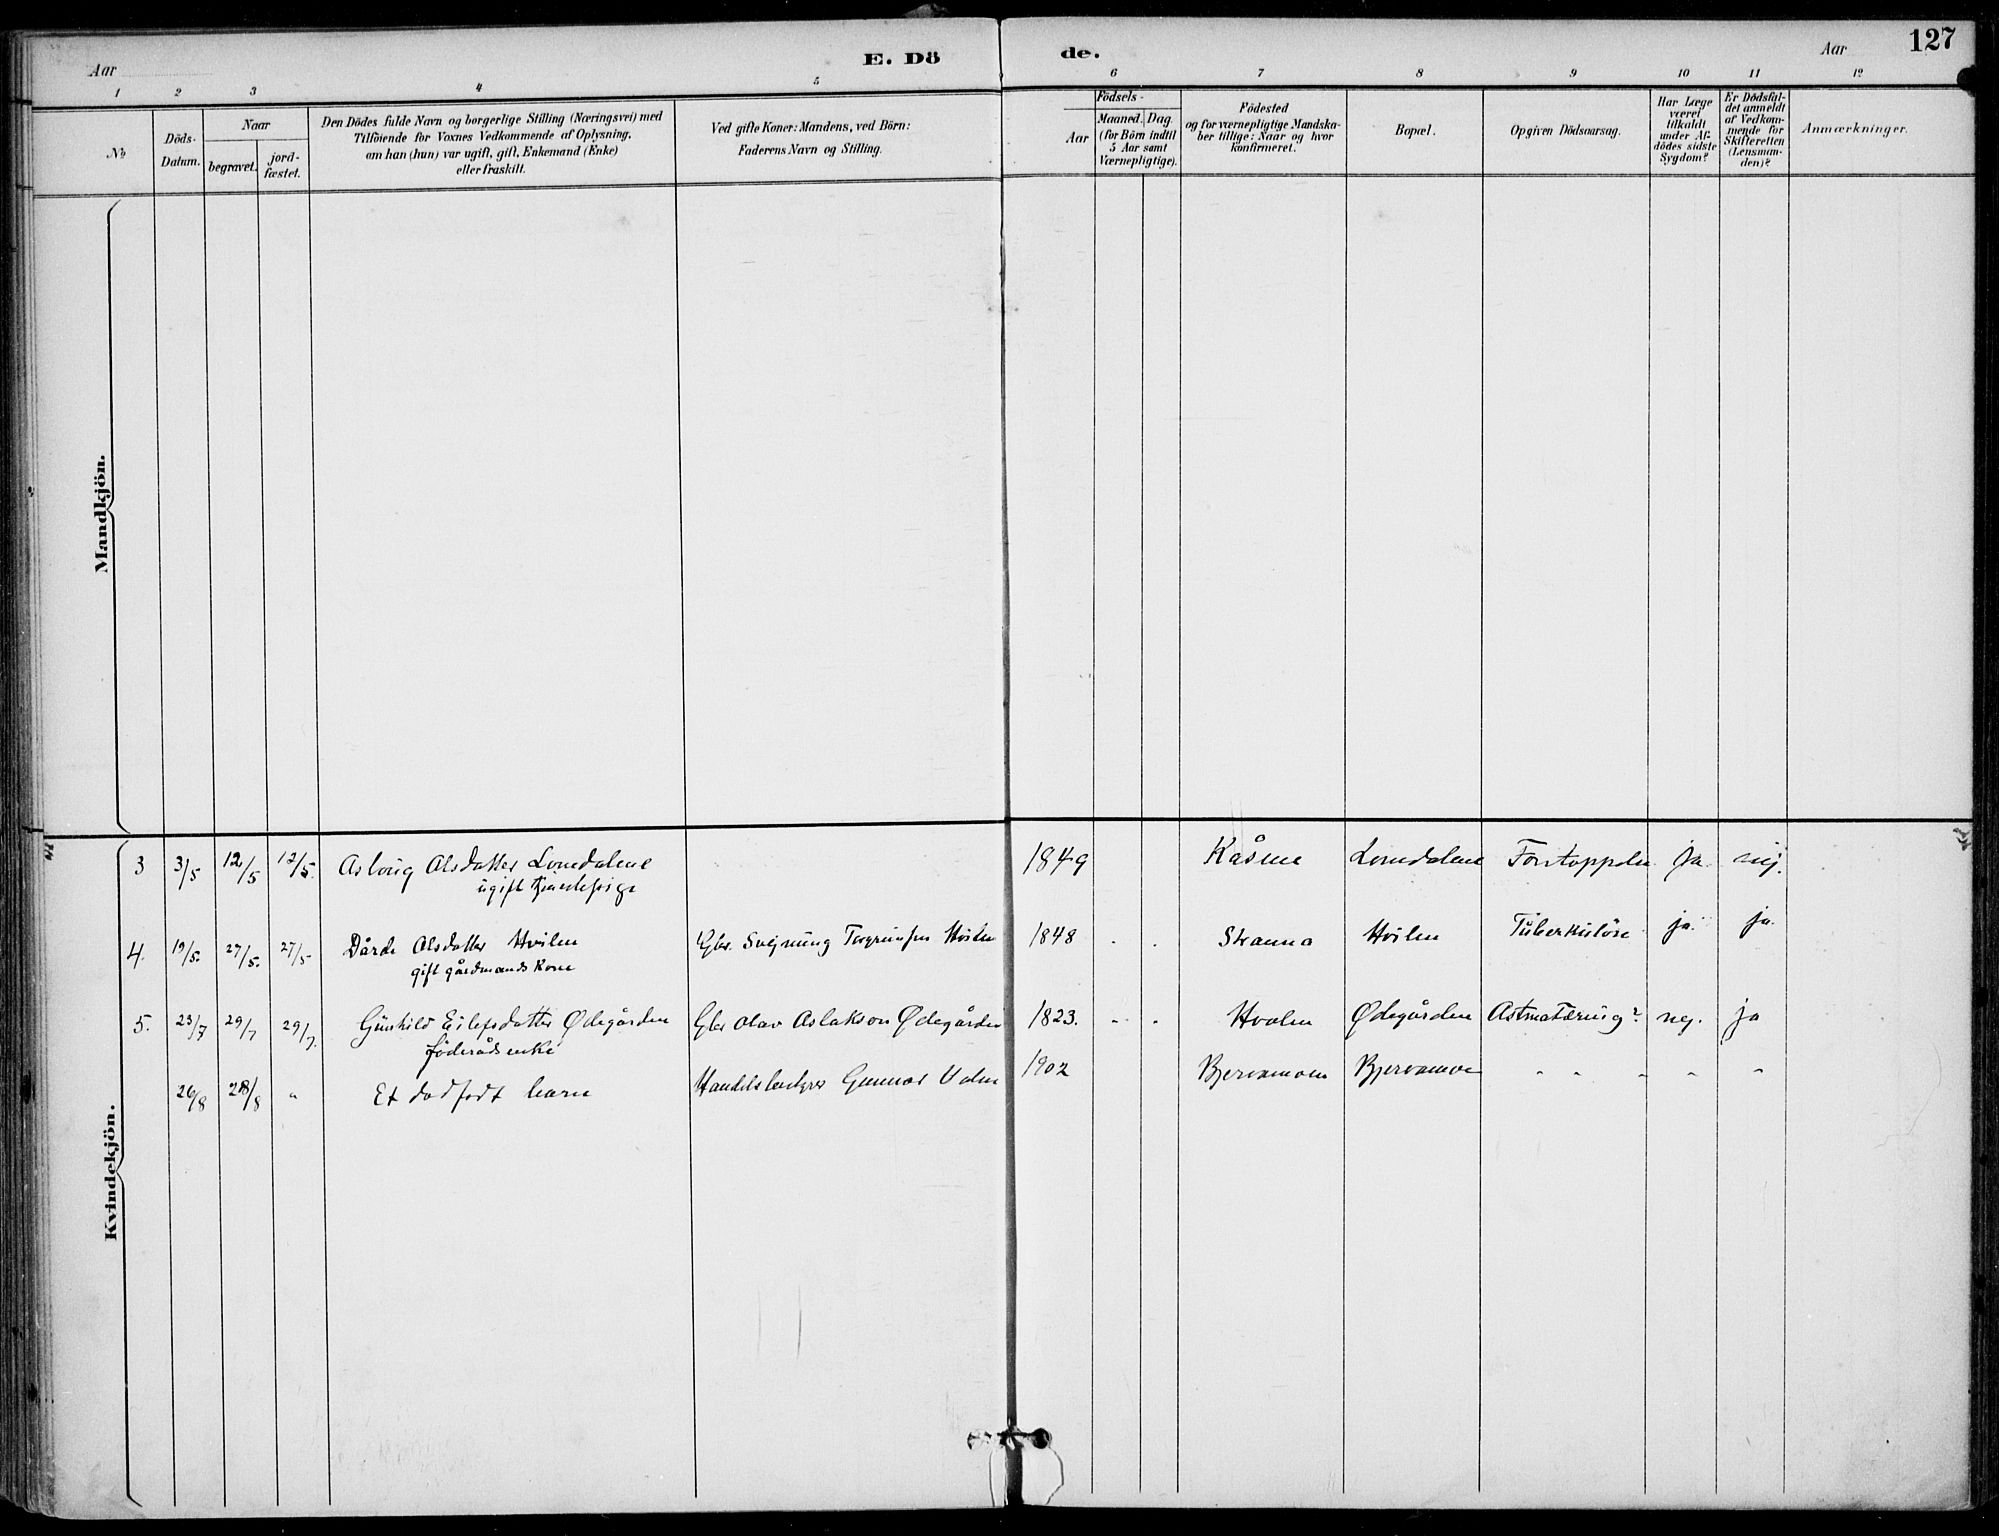 E. Dö de.
127
Aar
Aar
1 2 3 4 5 6 7 8 9 10 11 12
No
Döds-Datum.
Naar
begravet.
jord-fæstet.
Den Dödes fulde Navn og borgerlige Stilling (Næringsvei) med
Tilföiende for Voxnes Vedkommende af Oplysning,
om han (hun) var ugift, gift, Enkemand (Enke)
eller fraskilt.
Ved gifte Koner: Mandens, ved Börn:
Faderens Navn og Stilling.
Födsels-
Aar
Maaned. Dag
(for Börn indtil
5 Aar samt
Værnepligtige).
Födested
og for værnepligtige Mandska-
ber tillige: Naar og hvor
konfirmeret.
Bopæl.
Opgiven Dödsaarsag.
Har Læge
været
tilkaldt
under Af-
dödes sidste
Sygdom?
Er Dödsfal-
det anmeldt
af Vedkom-
mende for
Skifteretten
(Lensman-
den)?
Anmærkninger.
Mandkjön.
Kvindekjön.
3 3/5 12/5 12/5. Aslaug Olsdatter Lomdalene 1849 Kåsene Lomdalene Forstoppelse ja nej.
ugift tjenestepige
4. 19/5. 27/5. 27/5 Dårde Olsdatter Hvilen Gbr. Svejnung Torgrimsen 1848 - - Stranna Hvilen Tuberkuløse ja ja.
gift gårdmandskone
5. 23/7 29/7 29/7. Gunhild Eilefsdatter Ødegården Gbr Olav Aslakson Ødegården 1823. - - Hvalen Ødegården Astma Tæring? nej. ja
føderådsenke
26/8 28/8 " Et dødfødt barn Handelsbestyrer Gunnar 1902 Bjervamoen Bjervamoen " " " " "